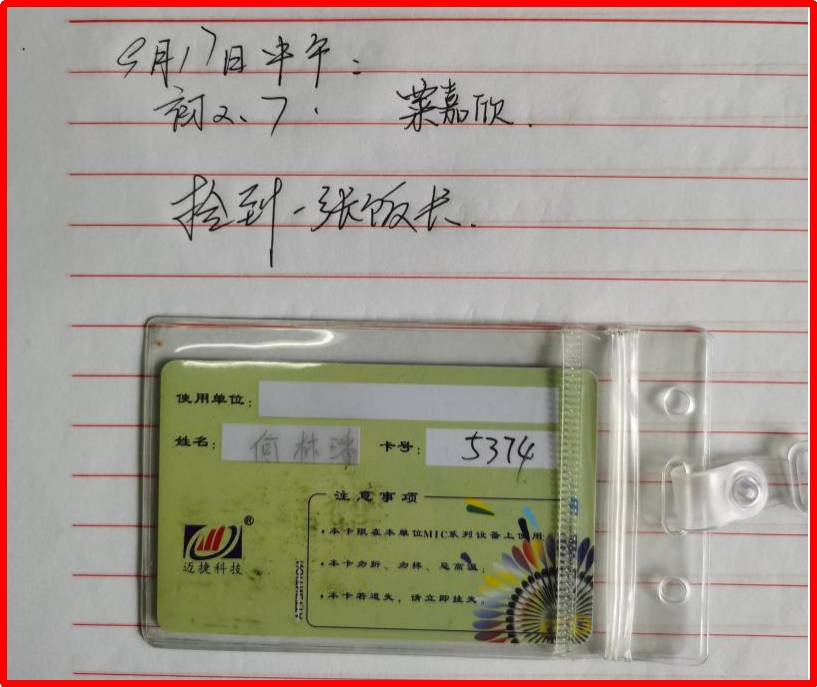 9月17日中午:
初2.7. 栗嘉欣.
捡到一张饭卡.
使用单位:
姓名: 何林 卡号: 5374
注意事项
·本卡限在本单位MIC系列设备上使用
·本卡勿折、勿摔、忌高温;
·本卡若遗失, 请立即挂失。
迈捷科技®
ATTENTION